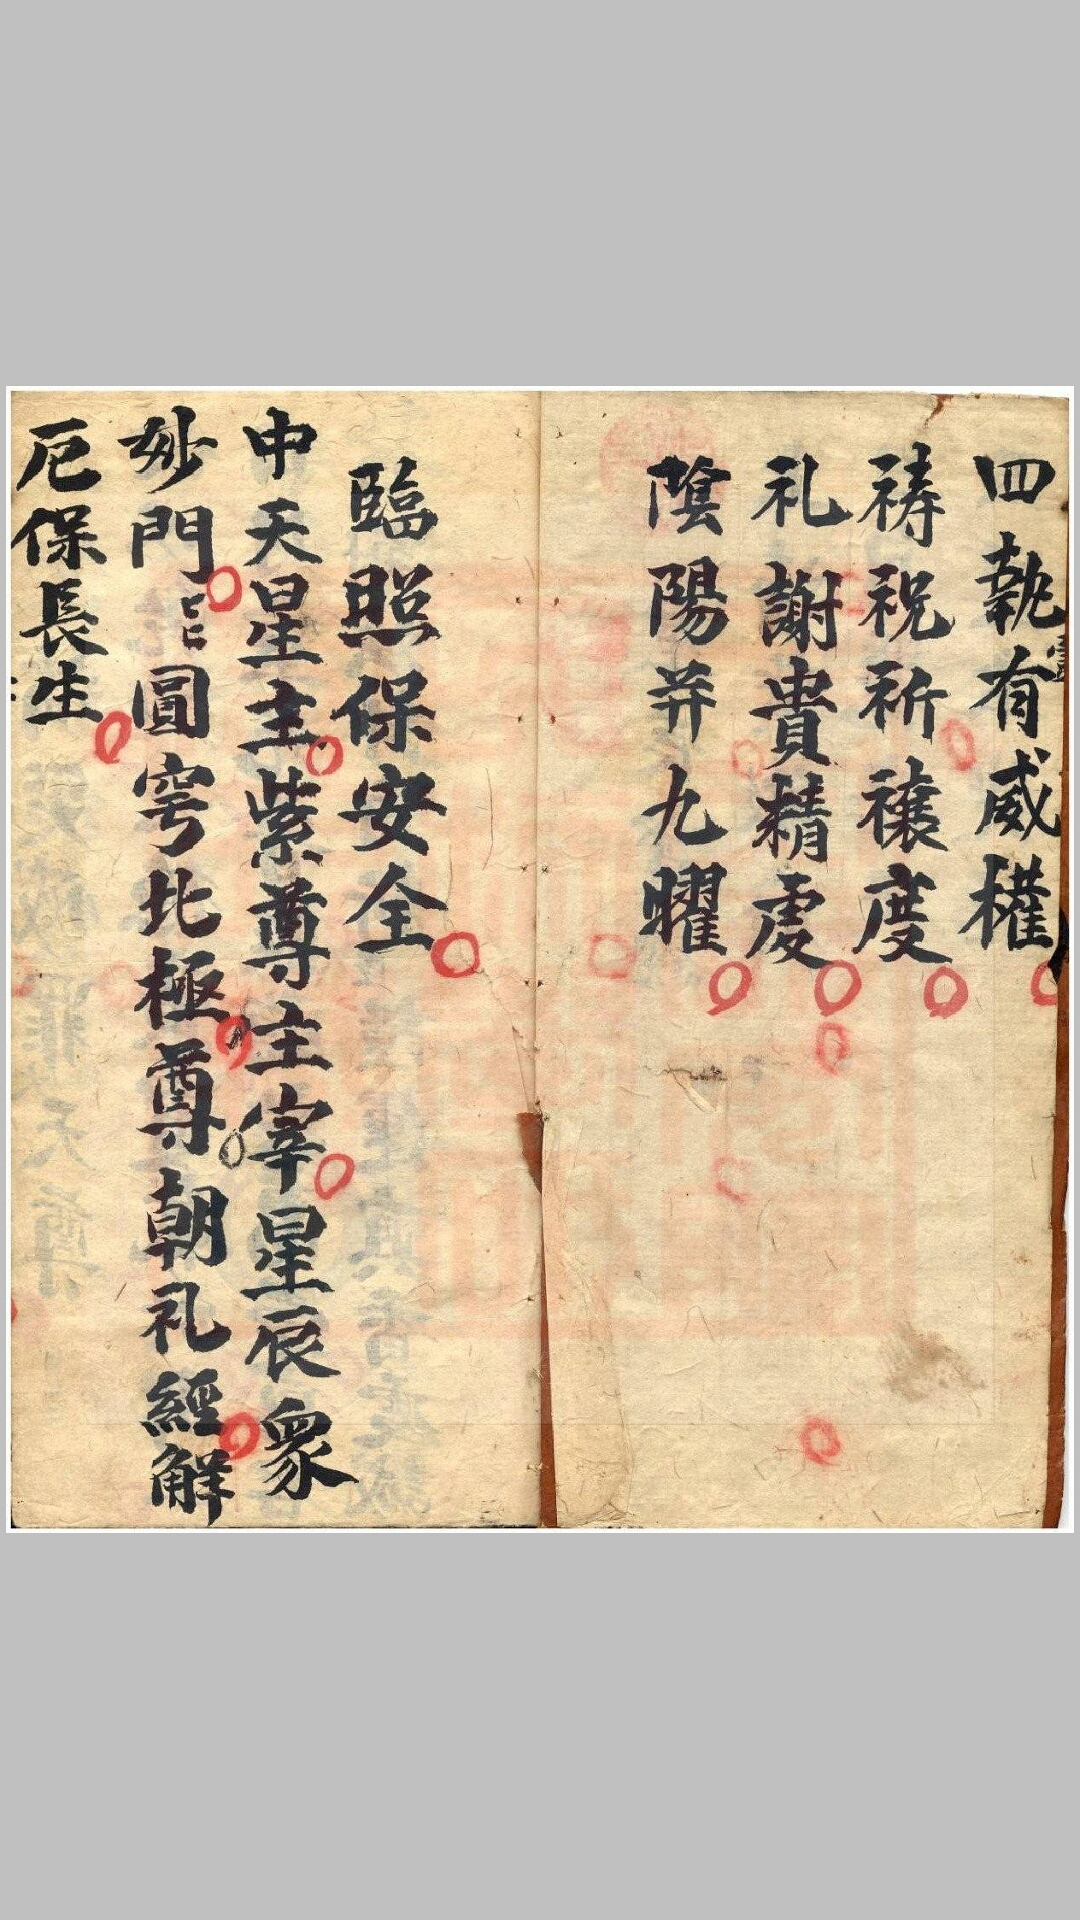 四執有威權
祷祝祈禳度
礼謝貴精虔
陰陽并九曜
臨照保安全
中天星主紫尊主宰星辰衆
妙門圓穹北極尊朝礼經解
厄保長生